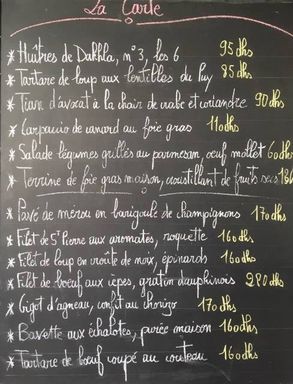 La Carte
* Huîtres de Dakhla, n°3, les 6 95 dhs
* Tartare de loup aux lentilles du Puy 85 dhs
* Tian d'avocat à la chair de crabe et coriandre 90 dhs
* Carpaccio de canard au foie gras 110 dhs
* Salade légumes grillés au parmesan, oeuf mollet 60 dhs
* Terrine de foie gras maison, croustillant de fruits secs
* Pavé de mérou en barigoule de champignons 170 dhs
* Filet de St Pierre aux aromates, roquette 160 dhs
* Filet de loup en croûte de noix, épinards 160 dhs
* Filet de boeuf aux cèpes, gratin dauphinois 280 dhs
* Gigot d'agneau, confit au chorizo 170 dhs
* Bavette aux échalotes, purée maison 160 dhs
* Tartare de boeuf coupé au couteau 160 dhs